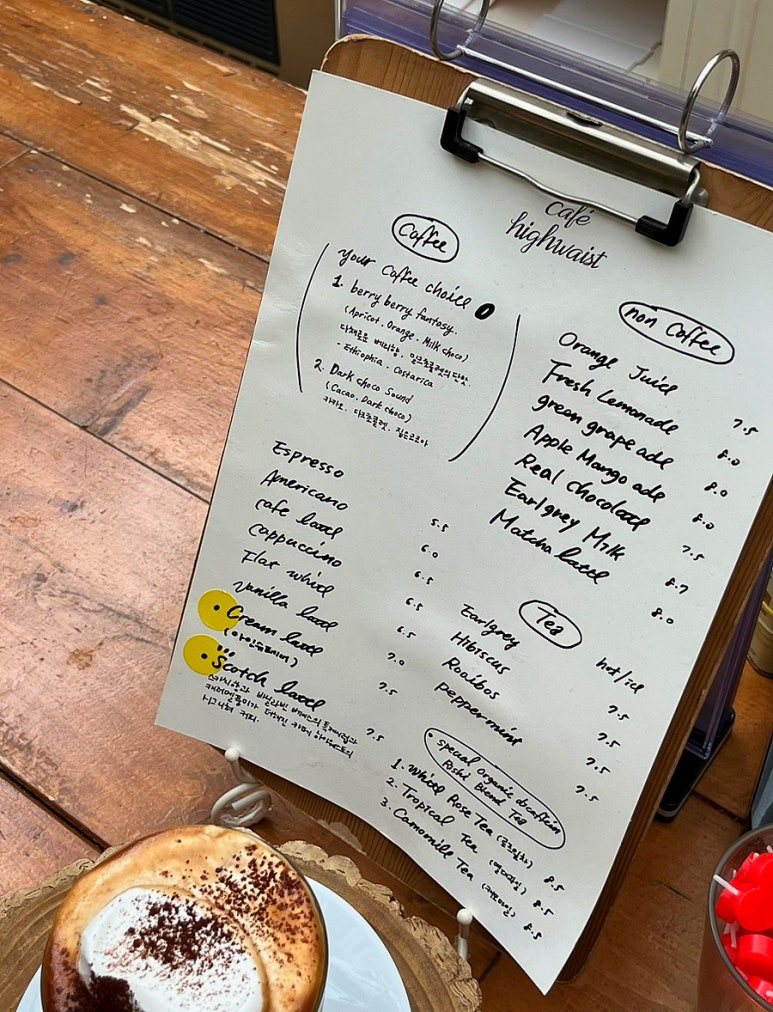 café
highwaist
Coffee
your coffee choice
1. berry berry fantasy.
(Apricot. Orange. Milk choco)
다채로운 베리향, 밀크초콜렛의 단맛.
- Ethiophia. Costarica
2. Dark choco Sound
(Cacao. Dark choco)
카카오. 다크초콜렛.
Espresso 5.5
Americano 6.0
cafe latte 6.5
cappuccino 6.5
Flat white 6.5
Vanilla latte 7.0
Cream latte 7.5
(아인슈페너)
Scotch latte 7.5
스카치향과 바닐라빈 베이스의
캐러멜풍미가 더해진 카페 하이웨스트의
시그니쳐 커피.
non Coffee
Orange Juice 7.5
Fresh Lemonade 8.0
green grape ade 8.0
Apple Mango ade 8.0
Real chocolate 7.5
Earlgrey Milk
Matcha latte 8.0
Tea
hot/ice
Earlgrey 7.5
Hibiscus 7.5
Rooibos 7.5
peppermint 7.5
• special organic decaffein
Rishi Blend Tea
1. White Rose Tea 8.5
2. Tropical Tea 8.5
3. Camomile Tea (캐모마일) 8.5